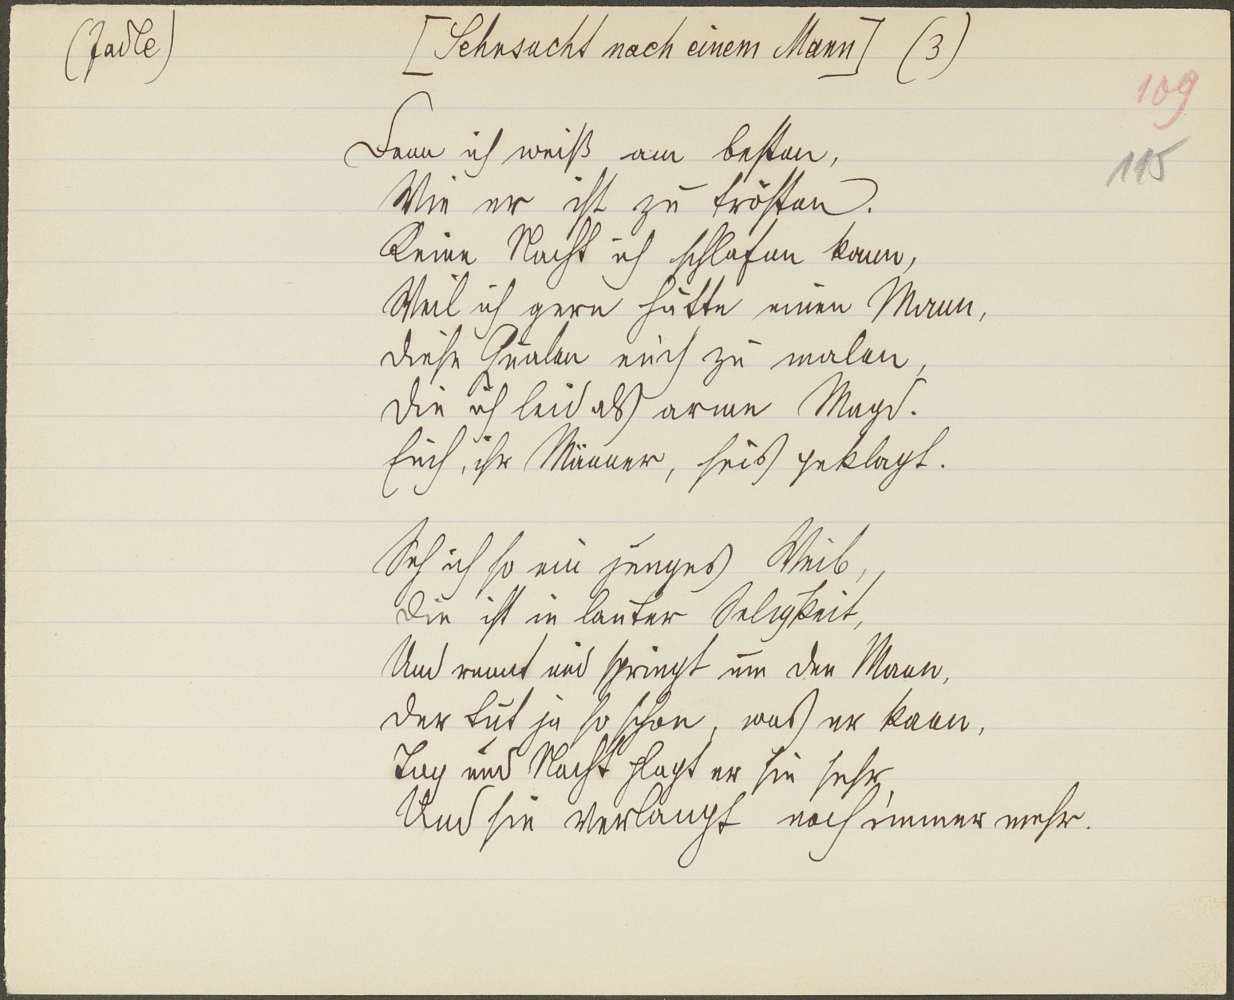 (Zadle) [Sehnsucht nach einem Mann] (3)
109
115
Denn ich weiß am besten,
Wie er ist zu trösten.
Keine Nacht ich schlafen kann,
Weil ich gern hätte einen Mann,
Diese Qualen euch zu malen,
Die ich leid als arme Magd.
Euch, ihr Männer, seis geklagt.
Seh ich so ein junges Weib,
Die ist in lauter Seligkeit,
Und rennt und springt um den Mann,
Der tut ja so schon, was er kann,
Tag und Nacht plagt er sie sehr,
Und sie verlangt noch immer mehr.